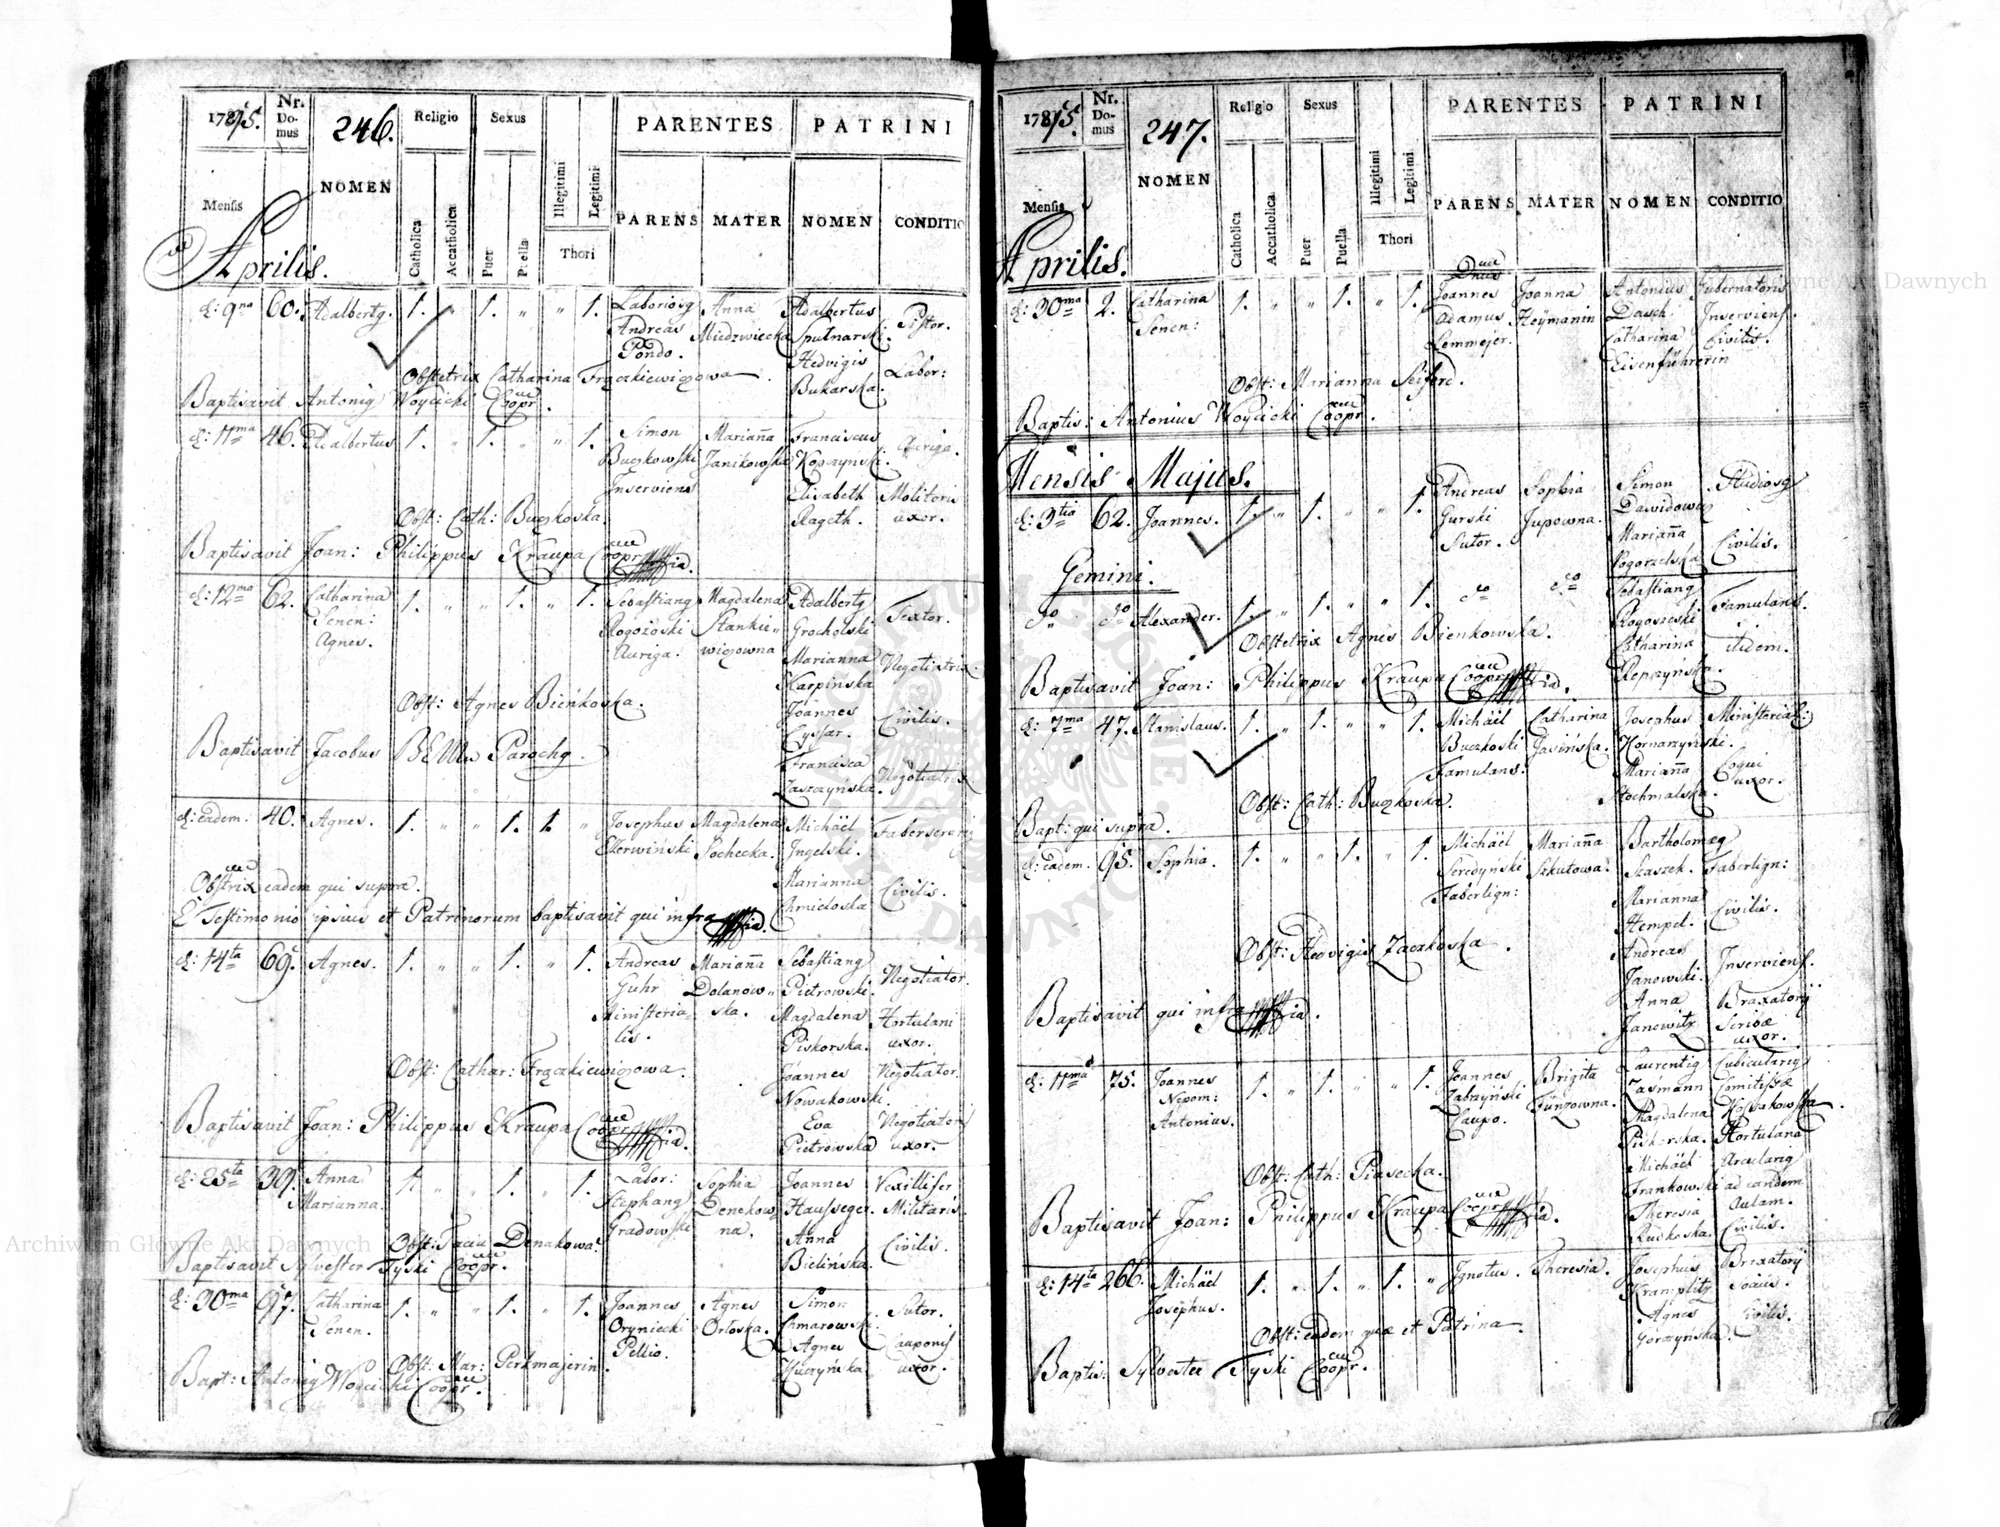 1795.
Nr. Domus
246.
NOMEN
Religio
Catholica
Accatholica
Sexus
Puer
Puella
Illegitimi
Legitimi
Thori
PARENTES
PARENS
MATER
PATRINI
NOMEN
CONDITIO
Mensis
Aprilis.
d: 9na 60. Adalbertg. 1. " 1. " " 1. Laboriosg Anna Adalbertus Pistor.
Andreas Miedzwiecka Sputnarski.
Pondo. Hedvigis Labor:
Obstetrix Catharina Frączkiewiczowa. Bukarska.
Baptisavit Antonig Woycicki Coopr.
d: 11ma 46. Adalbertus 1. " 1. " " 1. Simon Mariana Franciscus Auriga.
Buczkowski Janikowska Kopczynski.
Inserviens Elisabeth Molitoris
Obst: Cath: Buczkoska. Rageth. uxor.
Baptisavit Joan: Philippus Kraupa Coopr
d: 12ma 62. Catharina 1. " " 1. " 1. Sebastiang Magdalena Adalbertg Textor.
Senen: Rogozoski Stankie- Grocholski
Agnes. Auriga. wiczowna Marianna Negotiatrix.
Karpinska
Obst: Agnes Bieńkoska. Joannes Civilis.
Cyssar.
Baptisavit Jacobus Parochg. Francisca Negotiatrix
Zaszczyńska.
d: eadem. 40. Agnes. 1. " " 1. 1. " Josephus Magdalena Michäel
Czerwiński Sochecka. Jngelski.
Marianna Civilis.
Obstrix eadem qui supra. Chmieloska
E Testimonio ipsius et Patrinorum baptisavit qui infra
d: 14ta 69. Agnes. 1. " " 1. " 1. Andreas Mariana Sebastiang Negotiator.
Guhr Dolanow- Pietrowski.
Ministeria- ska. Magdalena Hortulani
lis. Piskorska. uxor.
Obst: Cathar: Frączkiewiczowa. Joannes Negotiator.
Nowakowski.
Baptisavit Joan: Philippus Kraupa Coopr Eva Negotiatoris
Pietrowska uxor.
d: 25ta 39. Anna 1. " " 1. " 1. Labor: Sophia Joannes Vexillifer
Marianna. Stephang Denekow- Haussegei. Militaris.
Gradowski na. Anna Civilis.
Obst: Denakowa. Bielińska.
Baptisavit Sylvester Tyski Coopr.
d: 30ma 97. Catharina 1. " " 1. " 1. Joannes Agnes Simon Sutor.
Senen. Oryniecki Orłoska. Chmarowski.
Pellio. Agnes
Obst: Mar: Perkmajerin. uxor.
Bapt: Antonig Woycicki Coopr.
1795.
Nr. Domus
247.
NOMEN
Religio
Catholica
Accatholica
Sexus
Puer
Puella
Illegitimi
Legitimi
Thori
PARENTES
PARENS
MATER
PATRINI
NOMEN
CONDITIO
Mensis
Aprilis.
d: 30ma 2. Catharina 1. " " 1. " 1. Joannes Joanna Antonius Gubernatoris
Senen: Adamus Heÿmanin Dasch. Inserviens.
Lemmejer. Catharina Civilis.
Eisenführerin
Obst: Marianna Seiferd.
Baptis: Antonius Woycicki Coopr.
Mensis Majus.
d: 3tia 62. Joannes. 1. " 1. " " 1. Andreas Sophia Simon Studiosg
Gurski Jupowna. Dawidowicz
Sutor. Mariana Civilis.
Pogorzelska
Gemini.
do do Alexander. 1. " 1. " " 1. do do Sebastiang Famulans.
Rogoszeski
Obstetrix Agnes Bienkowska. Catharina itidem.
Repczyńska.
Baptisavit Joan: Philippus Kraupa Coopr
d: 7ma 47. Stanislaus. 1. " 1. " " 1. Michäel Catharina Josephus Ministerial:
Buczkoski Jasińska. Kornarzynski.
Famulans. Mariana Coqui
Stochmalska. uxor.
Obst: Cath: Buczkoska.
Bapt: qui supra.
d: eadem. 95. Sophia. 1. " " 1. " 1. Michäel Mariana Bartholomeg
Seredyński Szkutowa. Szaszek. Faberlign:
Faberlign: Marianna
Hempel. Civilis.
Obst: Hedvigis Zaczkoska. Andreas
Janowski. Inserviens.
Baptisavit qui infra Anna Braxatorij
Janowitz Scribæ
uxor.
d: 11ma 75. Joannes 1. " 1. " " 1. Joannes Brigita Laurentig Cubicularig
Nepom: Zabrzyński Funzowna. Zasmann Comitissæ
Antonius. Caupo. Magdalena Kossakowska.
Piskorska. Hortulana
Obst: Cath: Piasecka. Michäel
Frankowski ad eandem
Baptisavit Joan: Philippus Kraupa Coopr Theresia Aulam.
Rudkoska. Civilis.
d: 14ta 266. Michäel 1. " 1. " 1. " Ignotus. Theresia. Josephus Braxatorij
Josephus. Kramplitz Socius.
Obst: eadem quæ et Patrina. Agnes Civilis.
Gorczynska.
Baptis: Sylvester Tyski Coopr.
Archiwum Główne Akt Dawnych